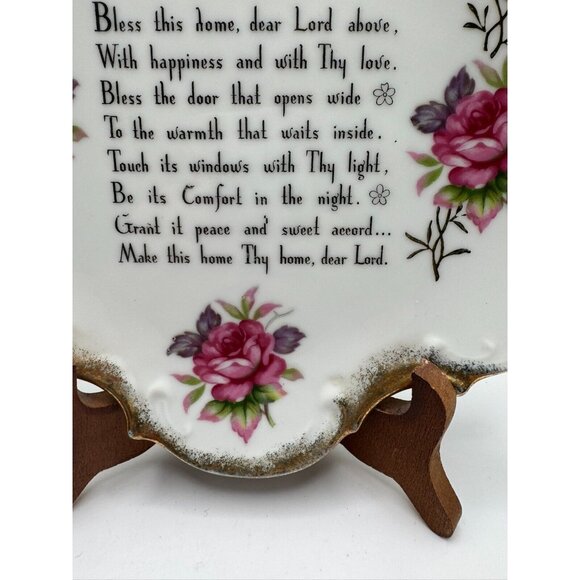 Bless this home, dear Lord above,
With happiness and with Thy love.
Bless the door that opens wide
To the warmth that waits inside.
Touch its windows with Thy light,
Be its Comfort in the night.
Grant it peace and sweet accord...
Make this home Thy home, dear Lord.